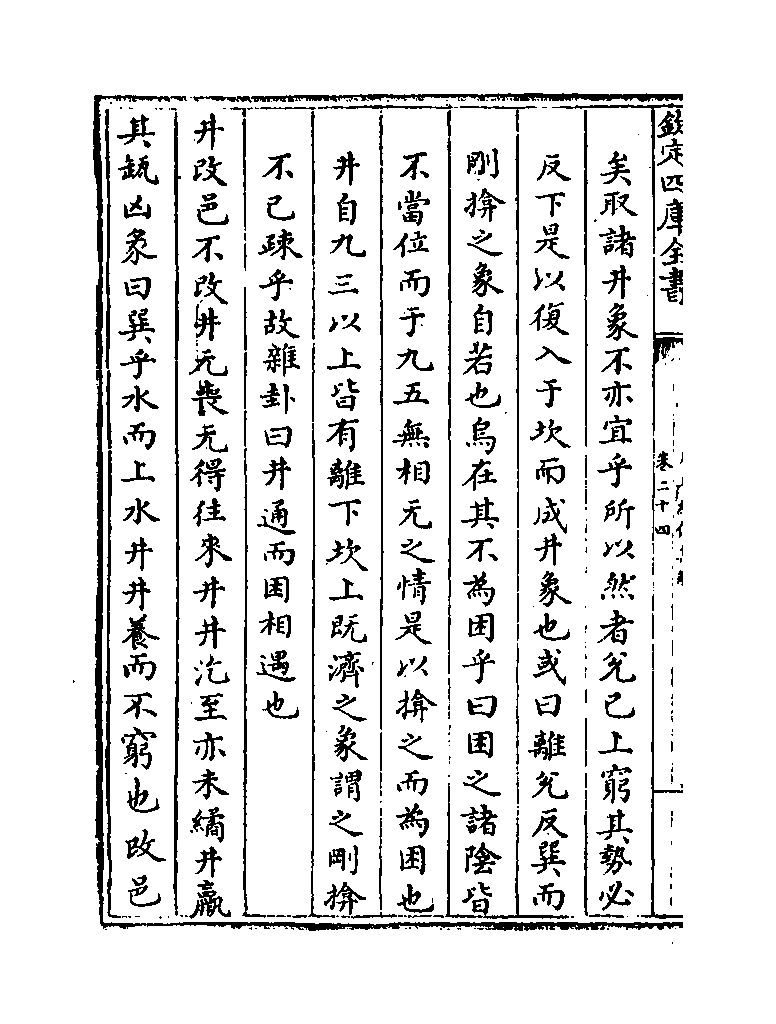 欽定四庫全書
卷二十四
矣取諸井象不亦宜乎所以然者兊已上窮其勢必
反下是以復入于坎而成井象也或曰離兊反巽而
剛揜之象自若也烏在其不為困乎曰困之諸陰皆
不當位而于九五無相元之情是以揜之而為困也
井自九三以上皆有離下坎上既濟之象謂之剛揜
不已疎乎故雜卦曰井通而困相遇也
井改邑不改井无喪无得往來井井汔至亦未繘井羸
其瓶凶彖曰巽乎水而上水井井養而不窮也改邑